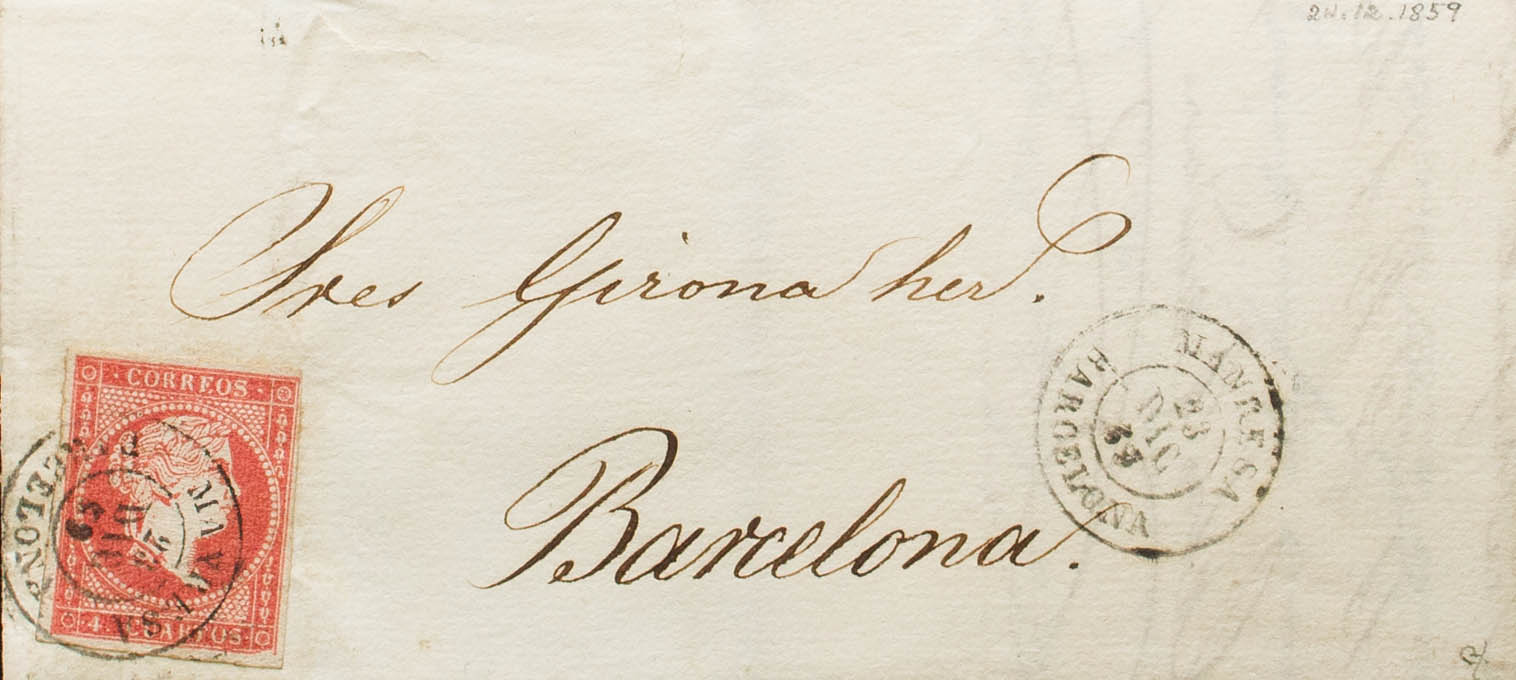 24.12.1859
Sres Girona her.
CORREOS
MANRESA
23
DIC
59
BARCELONA
Barcelona.
MANRESA
DIC
59
BARCELONA
4 CUARTOS